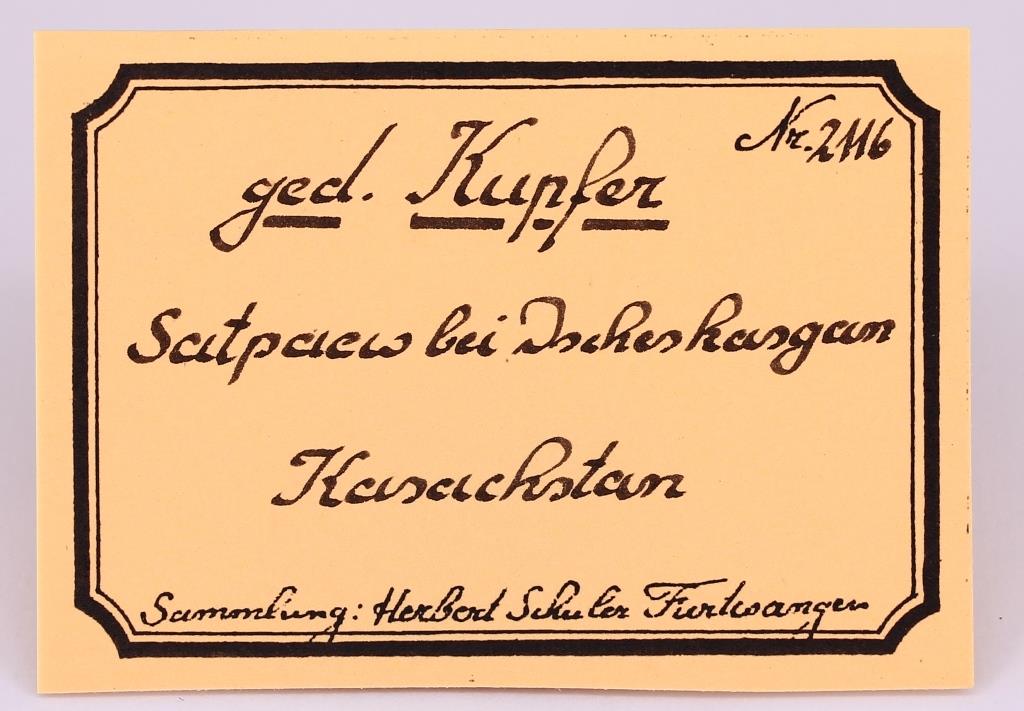 Nr. 2116
ged. Kupfer
Satpaew bei Dscheskasgan
Kasachstan
Sammlung: Herbert Schuler Furtwangen